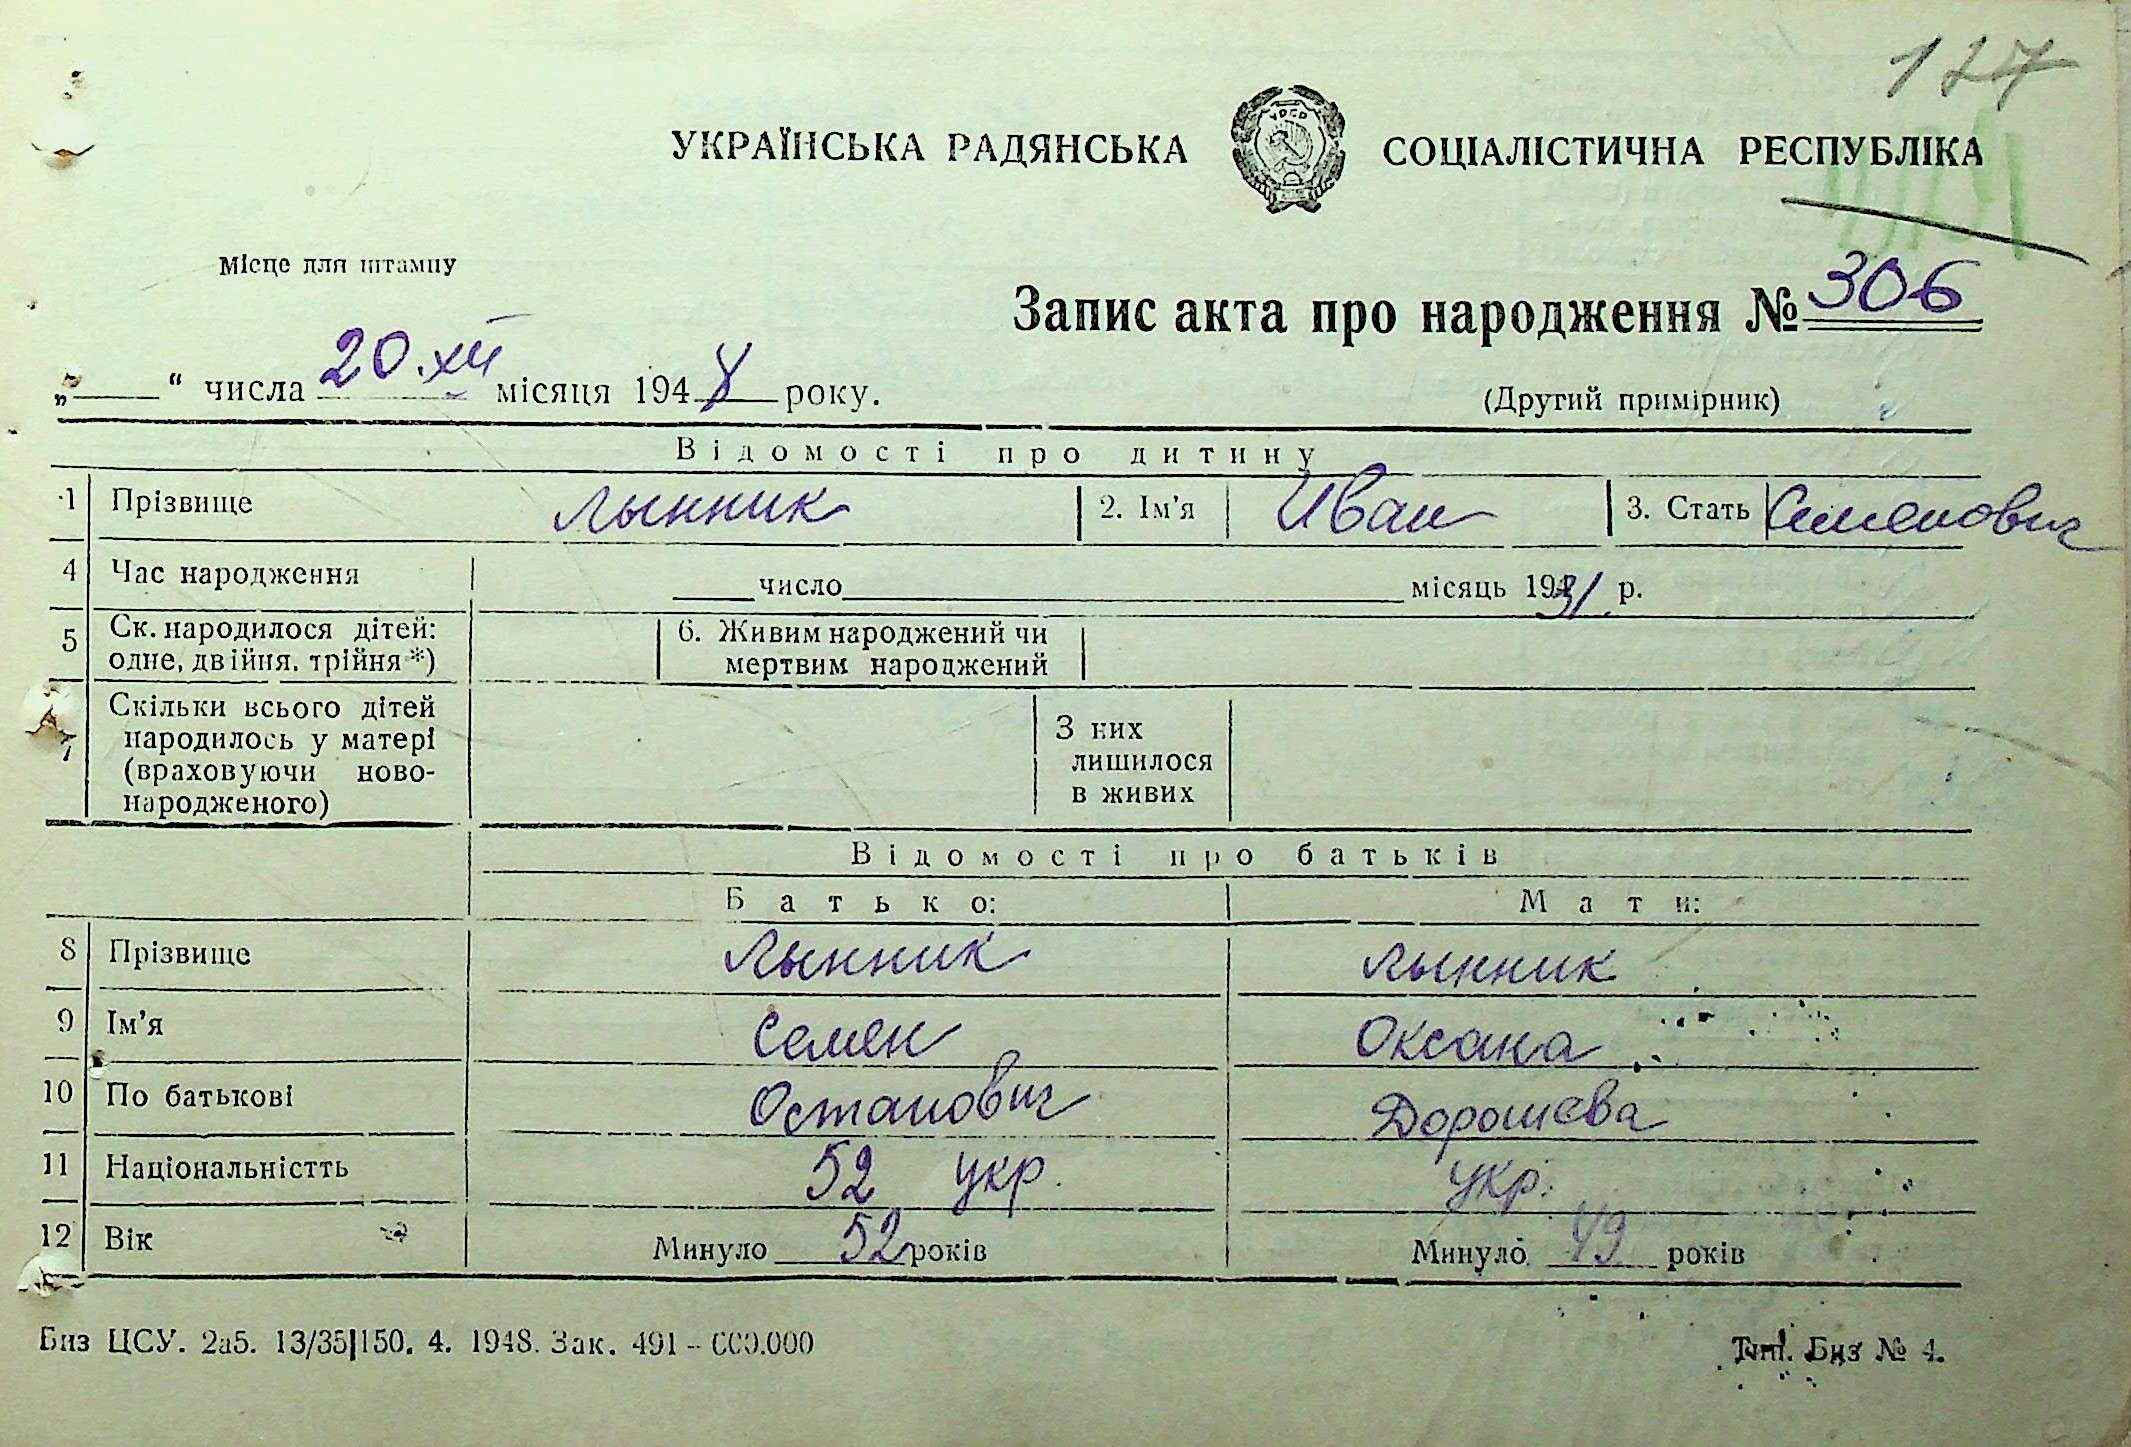 127
УКРАЇНСЬКА РАДЯНСЬКА СОЦІАЛІСТИЧНА РЕСПУБЛІКА
УРСР
Місце для штампу
Запис акта про народження № 306
„ “ числа 20.XII місяця 1948 року.
(Другий примірник)
Відомості про дитину
1 Прізвище Лынник 2. Ім'я Иван 3. Стать Семенович
4 Час народження число місяць 1931 р.
5 Ск. народилося дітей: 6. Живим народжений чи
одне, двійня, трійня *) мертвим народжений
7 Скільки всього дітей З них
народилось у матері лишилося
(враховуючи ново- в живих
народженого)
Відомості про батьків
Батько: Мати:
8 Прізвище Лынник Лынник
9 Ім'я Семен Оксана
10 По батькові Остапович Дорошева
11 Національністть 52 укр. укр.
12 Вік Минуло 52 років Минуло 49 років
Биз ЦСУ. 2а5. 13/35|150. 4. 1948. Зак. 491 – 000.000 Тип. Биз № 4.